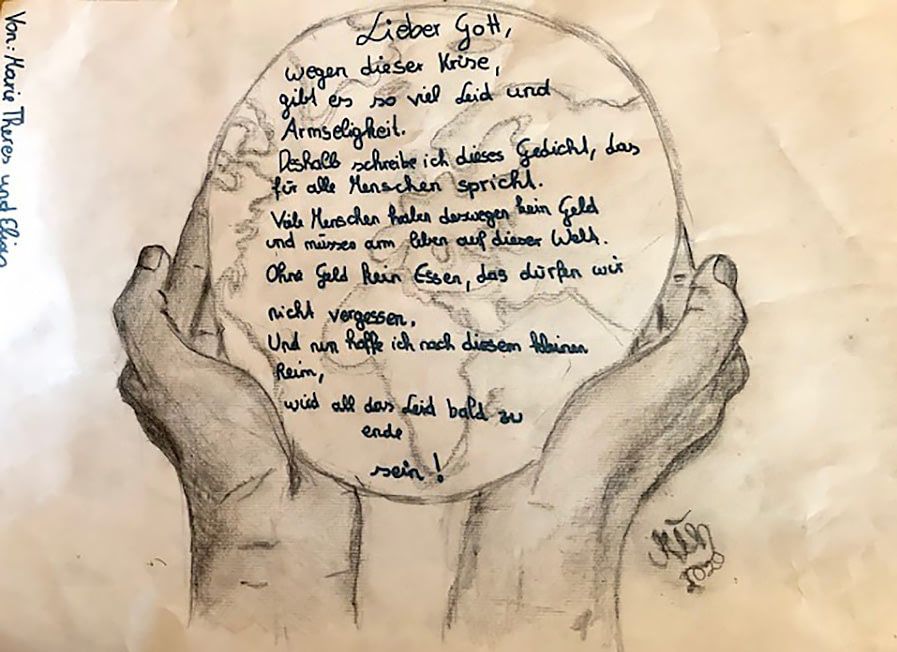 Lieber Gott,
wegen dieser Krise,
gibt es so viel Leid und
Armseligkeit.
Deshalb schreibe ich dieses Gedicht, das
für alle Menschen spricht.
Viele Menschen haben deswegen kein Geld
und müssen arm leben auf dieser Welt.
Ohne Geld kein Essen, das dürfen wir
nicht vergessen.
Und nun hoffe ich nach diesem kleinen
Reim,
wird all das Leid bald zu
ende
sein!
Von: Marie Theres und
2020